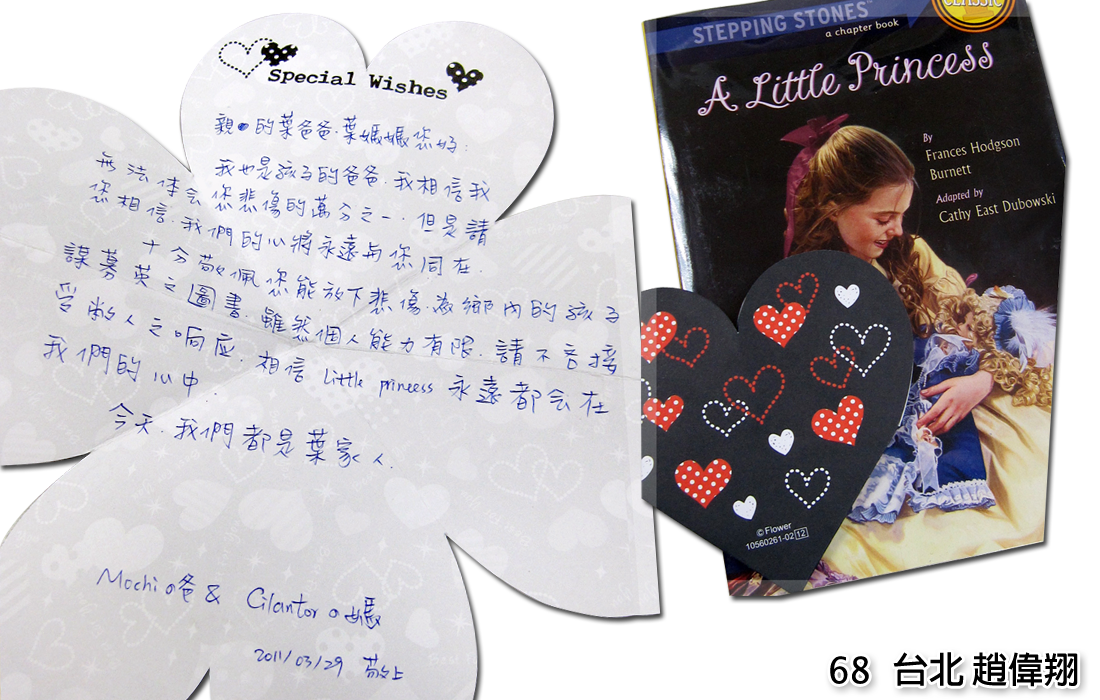 Special Wishes
親的葉爸爸.葉媽媽您好:
我也是孩子的爸爸.我相信我
無法体会您悲傷的萬分之一.但是請
您相信.我們的心將永遠与您同在.
十分敬佩您能放下悲傷.為鄉內的孩子
謀募英文圖書.雖然個人能力有限.請不吝接
受敝人之响应.相信 Little princess 永遠都会在
我們的心中.
今天.我們都是葉家人.
Mochi の爸 & Cilantor の媽
2011/03/29 敬上
STEPPING STONES™
a chapter book
CLASSIC
A Little Princess
By
Frances Hodgson
Burnett
Adapted by
Cathy East Dubowski
© Flower
10560261-02 12
68 台北 趙偉翔